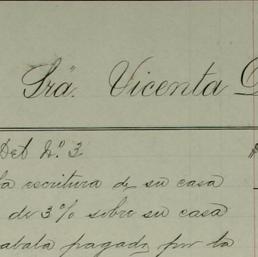 Sra. Vicenta
Det No. 3
la escritura de su casa
de 3% sobre su casa
abala pagada por la